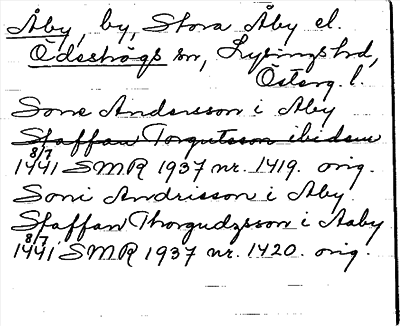 Åby, by, Stora Åby el.
Ödeshögs sn, Lysings hd,
Österg. l.
Sone Andersson i Aby
Staffan Torgutsson ibidem
8/7 1441 SMR 1937 nr. 1419. orig.
Soni Andrisson i Aby.
Staffan Thorgudzsson i Aaby
8/7 1441, SMR 1937 nr. 1420. orig.